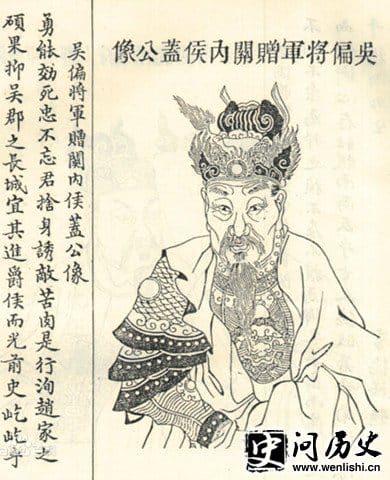 吳偏將軍贈關內侯蓋公像
吳偏將軍贈關內侯蓋公像
勇能効死忠不忘君捨身誘敵苦肉是行洵趙家之
碩果抑吳郡之長城宜其進爵侯而光前史屹屹乎
问历史
www.wenlishi.cn